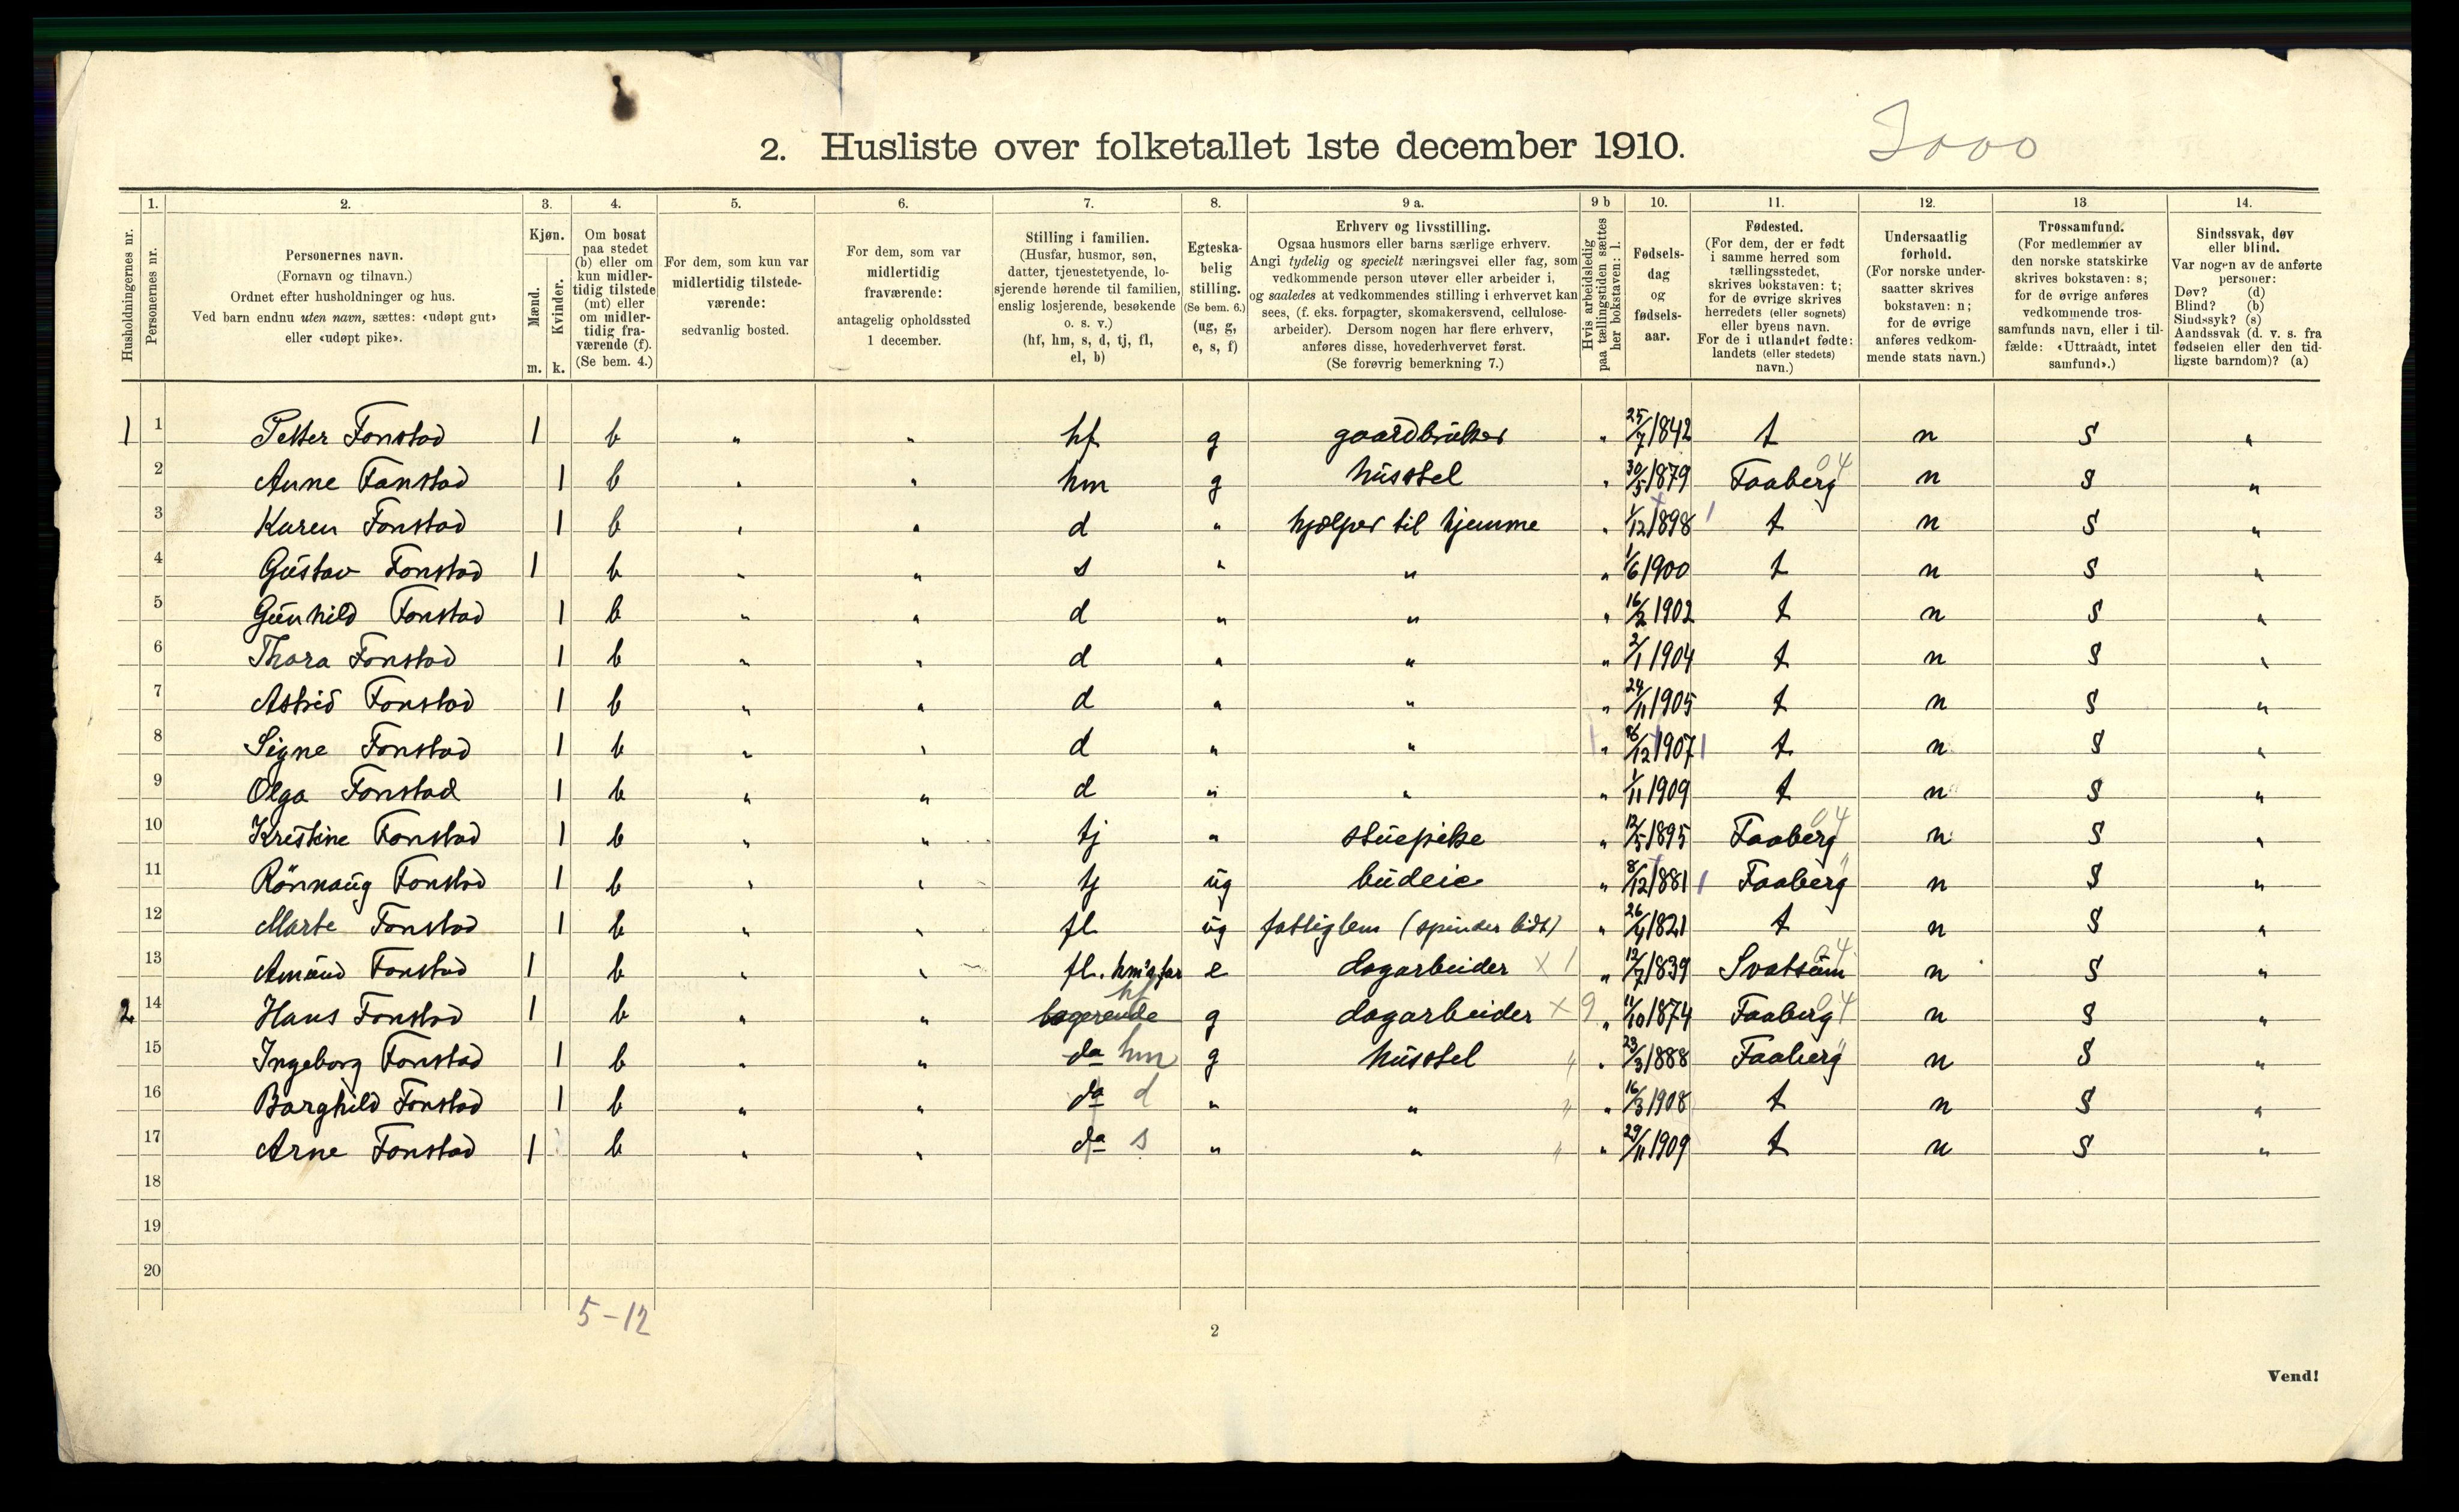 2. Husliste over folketallet 1ste december 1910.
Husholdningernes nr.
1. Personernes nr.
2. Personernes navn.
(Fornavn og tilnavn.)
Ordnet efter husholdninger og hus.
Ved barn endnu uten navn, sættes: «udøpt gut»
eller «udøpt pike».
3. Kjøn.
Mænd. m.
Kvinder. k.
4. Om bosat
paa stedet
(b) eller om
kun midler-
tidig tilstede
(mt) eller
om midler-
tidig fra-
værende (f).
(Se bem. 4.)
5. For dem, som kun var
midlertidig tilstede-
værende:
sedvanlig bosted.
6. For dem, som var
midlertidig
fraværende:
antagelig opholdssted
1 december.
7. Stilling i familien.
(Husfar, husmor, søn,
datter, tjenestetyende, lo-
sjerende hørende til familien,
enslig losjerende, besøkende
o. s. v.)
(hf, hm, s, d, tj, fl,
el, b)
8. Egteska-
belig
stilling.
(Se bem. 6.)
(ug, g,
e, s, f)
9 a. Erhverv og livsstilling.
Ogsaa husmors eller barns særlige erhverv.
Angi tydelig og specielt næringsvei eller fag, som
vedkommende person utøver eller arbeider i,
og saaledes at vedkommendes stilling i erhvervet kan
sees, (f. eks. forpagter, skomakersvend, cellulose-
arbeider). Dersom nogen har flere erhverv,
anføres disse, hovederhvervet først.
(Se forøvrig bemerkning 7.)
9 b Hvis arbeidsledig
paa tællingstiden sættes
her bokstaven: l.
10. Fødsels-
dag
og
fødsels-
aar.
11. Fødested.
(For dem, der er født
i samme herred som
tællingsstedet,
skrives bokstaven: t;
for de øvrige skrives
herredets (eller sognets)
eller byens navn.
For de i utlandet fødte:
landets (eller stedets)
navn.)
12. Undersaatlig
forhold.
(For norske under-
saatter skrives
bokstaven: n;
for de øvrige
anføres vedkom-
mende stats navn.)
13. Trossamfund.
(For medlemmer av
den norske statskirke
skrives bokstaven: s;
for de øvrige anføres
vedkommende tros-
samfunds navn, eller i til-
fælde: «Uttraadt, intet
samfund».)
14. Sindssvak, døv
eller blind.
Var nogen av de anførte
personer:
Døv? (d)
Blind? (b)
Sindssyk? (s)
Aandssvak (d. v. s. fra
fødselen eller den tid-
ligste barndom)? (a)
1 1 Petter Fonstad 1 b " " hf g gaardbruker " 25/7 1842 t n s "
2 Anne Fonstad 1 b " " hm g husstel " 30/5 1879 Faaberg 04 n s "
3 Karen Fonstad 1 b " " d " hjælper til hjemme " 1/12 1898 t n s "
4 Gustav Fonstad 1 b " " s " " " 1/6 1900 t n s "
5 Gunhild Fonstad 1 b " " d " " " 16/2 1902 t n s "
6 Thora Fonstad 1 b " " d " " " 2/1 1904 t n s "
7 Astrid Fonstad 1 b " " d " " " 24/11 1905 t n s "
8 Signe Fonstad 1 b " " d " " " /12 1907 t n s "
9 Olga Fonstad 1 b " " d " " " 1/11 1909 t n s "
10 Kristine Fonstad 1 b " " tj " stuepike " 12/5 1895 Faaberg 04 n s "
11 Rönnaug Fonstad 1 b " " tj ug budeie " 8/12 1881 Faaberg " n s "
12 Marte Fonstad 1 b " " fl ug fattiglem (spinder lidt) " 26/4 1821 t n s "
13 Amund Fonstad 1 b " " fl. hm's far e dagarbeider X 1 " 12/7 1839 Svatsum 04 n s "
2 14 Hans Fonstad 1 b " " logerende hf g dagarbeider X 9 " 11/10 1874 Faaberg 04 n s "
15 Ingeborg Fonstad 1 b " " da hm g husstel " " 23/3 1888 Faaberg " n s "
16 Borghild Fonstad 1 b " " da d " " " " 16/3 1908 t n s "
17 Arne Fonstad 1 b " " da s " " " " 29/11 1909 t n s "
18
19
20
5-12
2
Vend!